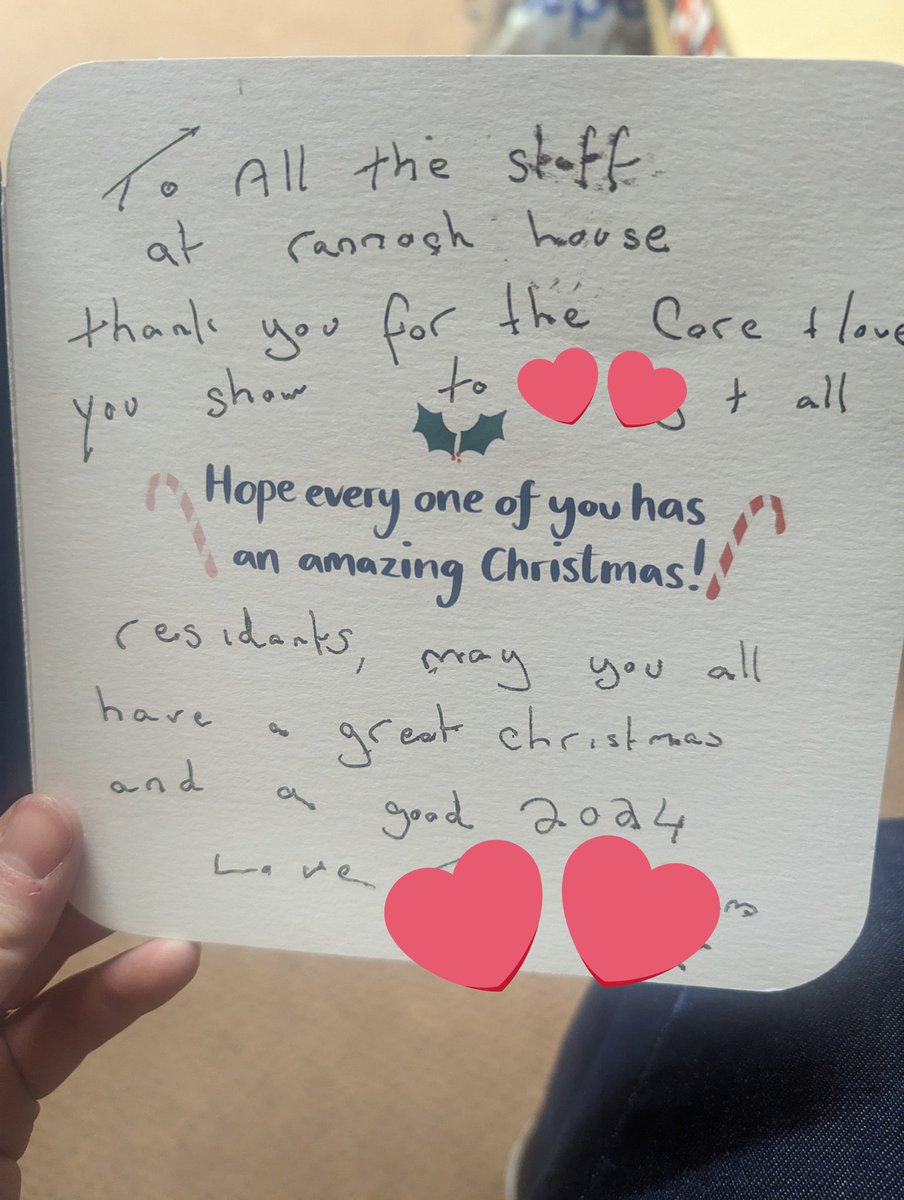 To All the staff
at rannogh house
thank you for the Care + love
you show to + all
Hope every one of you has
an amazing Christmas!
residants, may you all
have a great christmas
and a good 2024
Love